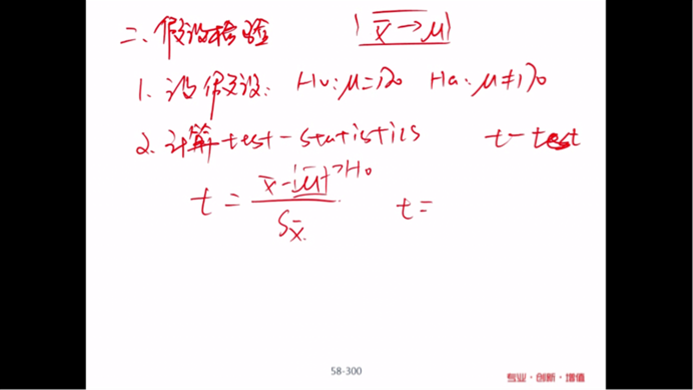 二、假设检验 | x̄→μ |
1. 设假设: H0: μ=170 Ha: μ≠170
2. 计算test-statistics t-test
t = (x̄-μ)/Sx̄ →H0 t=
58-300
专业·创新·增值